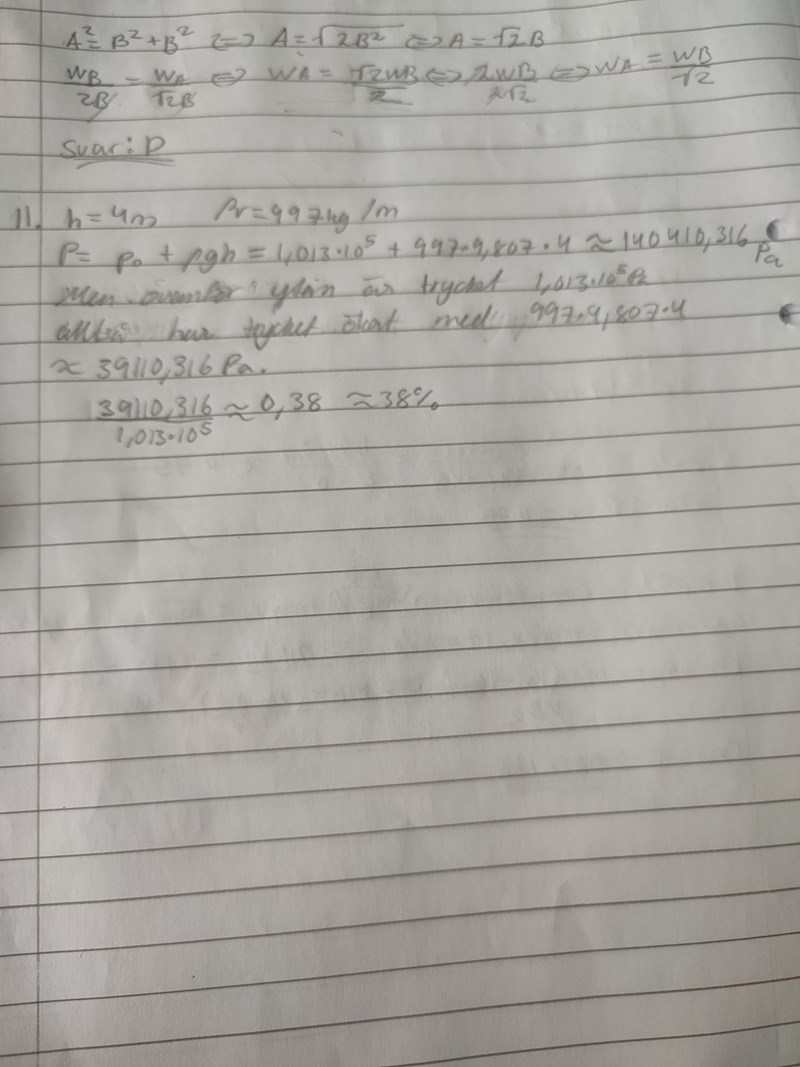 A² = B² + B² <=> A = √2B² <=> A = √2B
WB/2B = WA/√2B <=> WA = √2WB/2 <=> 2WB/2√2 <=> WA = WB/√2
Svar: D
11. h = 4m Pv = 997kg/m
P = p₀ + ρgh = 1,013·10⁵ + 997·9,807·4 ≈ 140410,316 Pa
Men ovanför ytan är trycket 1,013·10⁵ Pa
alltså har trycket ökat med 997·9,807·4
≈ 39110,316 Pa.
39110,316/1,013·10⁵ ≈ 0,38 ≈ 38%